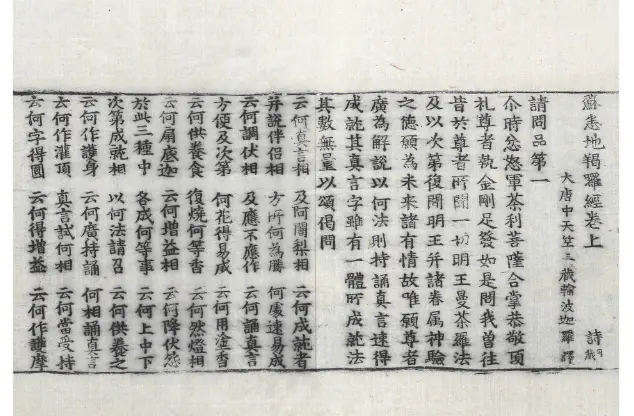 蘇悉地羯羅經卷上 詩
大唐中天竺三藏輸波迦羅譯
請問品第一
尒時忿怒軍荼利菩薩合掌恭敬頂
礼尊者執金剛足發如是問我曾往
昔於尊者所聞一切明王曼荼羅法
及以次第復聞明王并諸眷属神驗
之德願為未來諸有情故唯願尊者
廣為解說以何法則持誦真言速得
成就其真言字雖有一體所成就法
其數無量以頌偈問
云何真言相 及阿闍梨相 云何成就者
并說伴侶相 方所何為勝 何處速易成
云何調伏相 及應不應作 云何誦真言
方便及次第 何花得易成 云何用塗香
云何供養食 復燒何等香 云何然燈相
云何扇底迦 云何增益相 云何降伏怨
於此三種中 各成何等事 云何上中下
次第成就相 以何法請召 云何供養之
云何作護身 云何廣持誦 何相誦真言
云何作灌頂 真言試何相 云何當受持
云何字得圓 云何得增益 云何作護摩